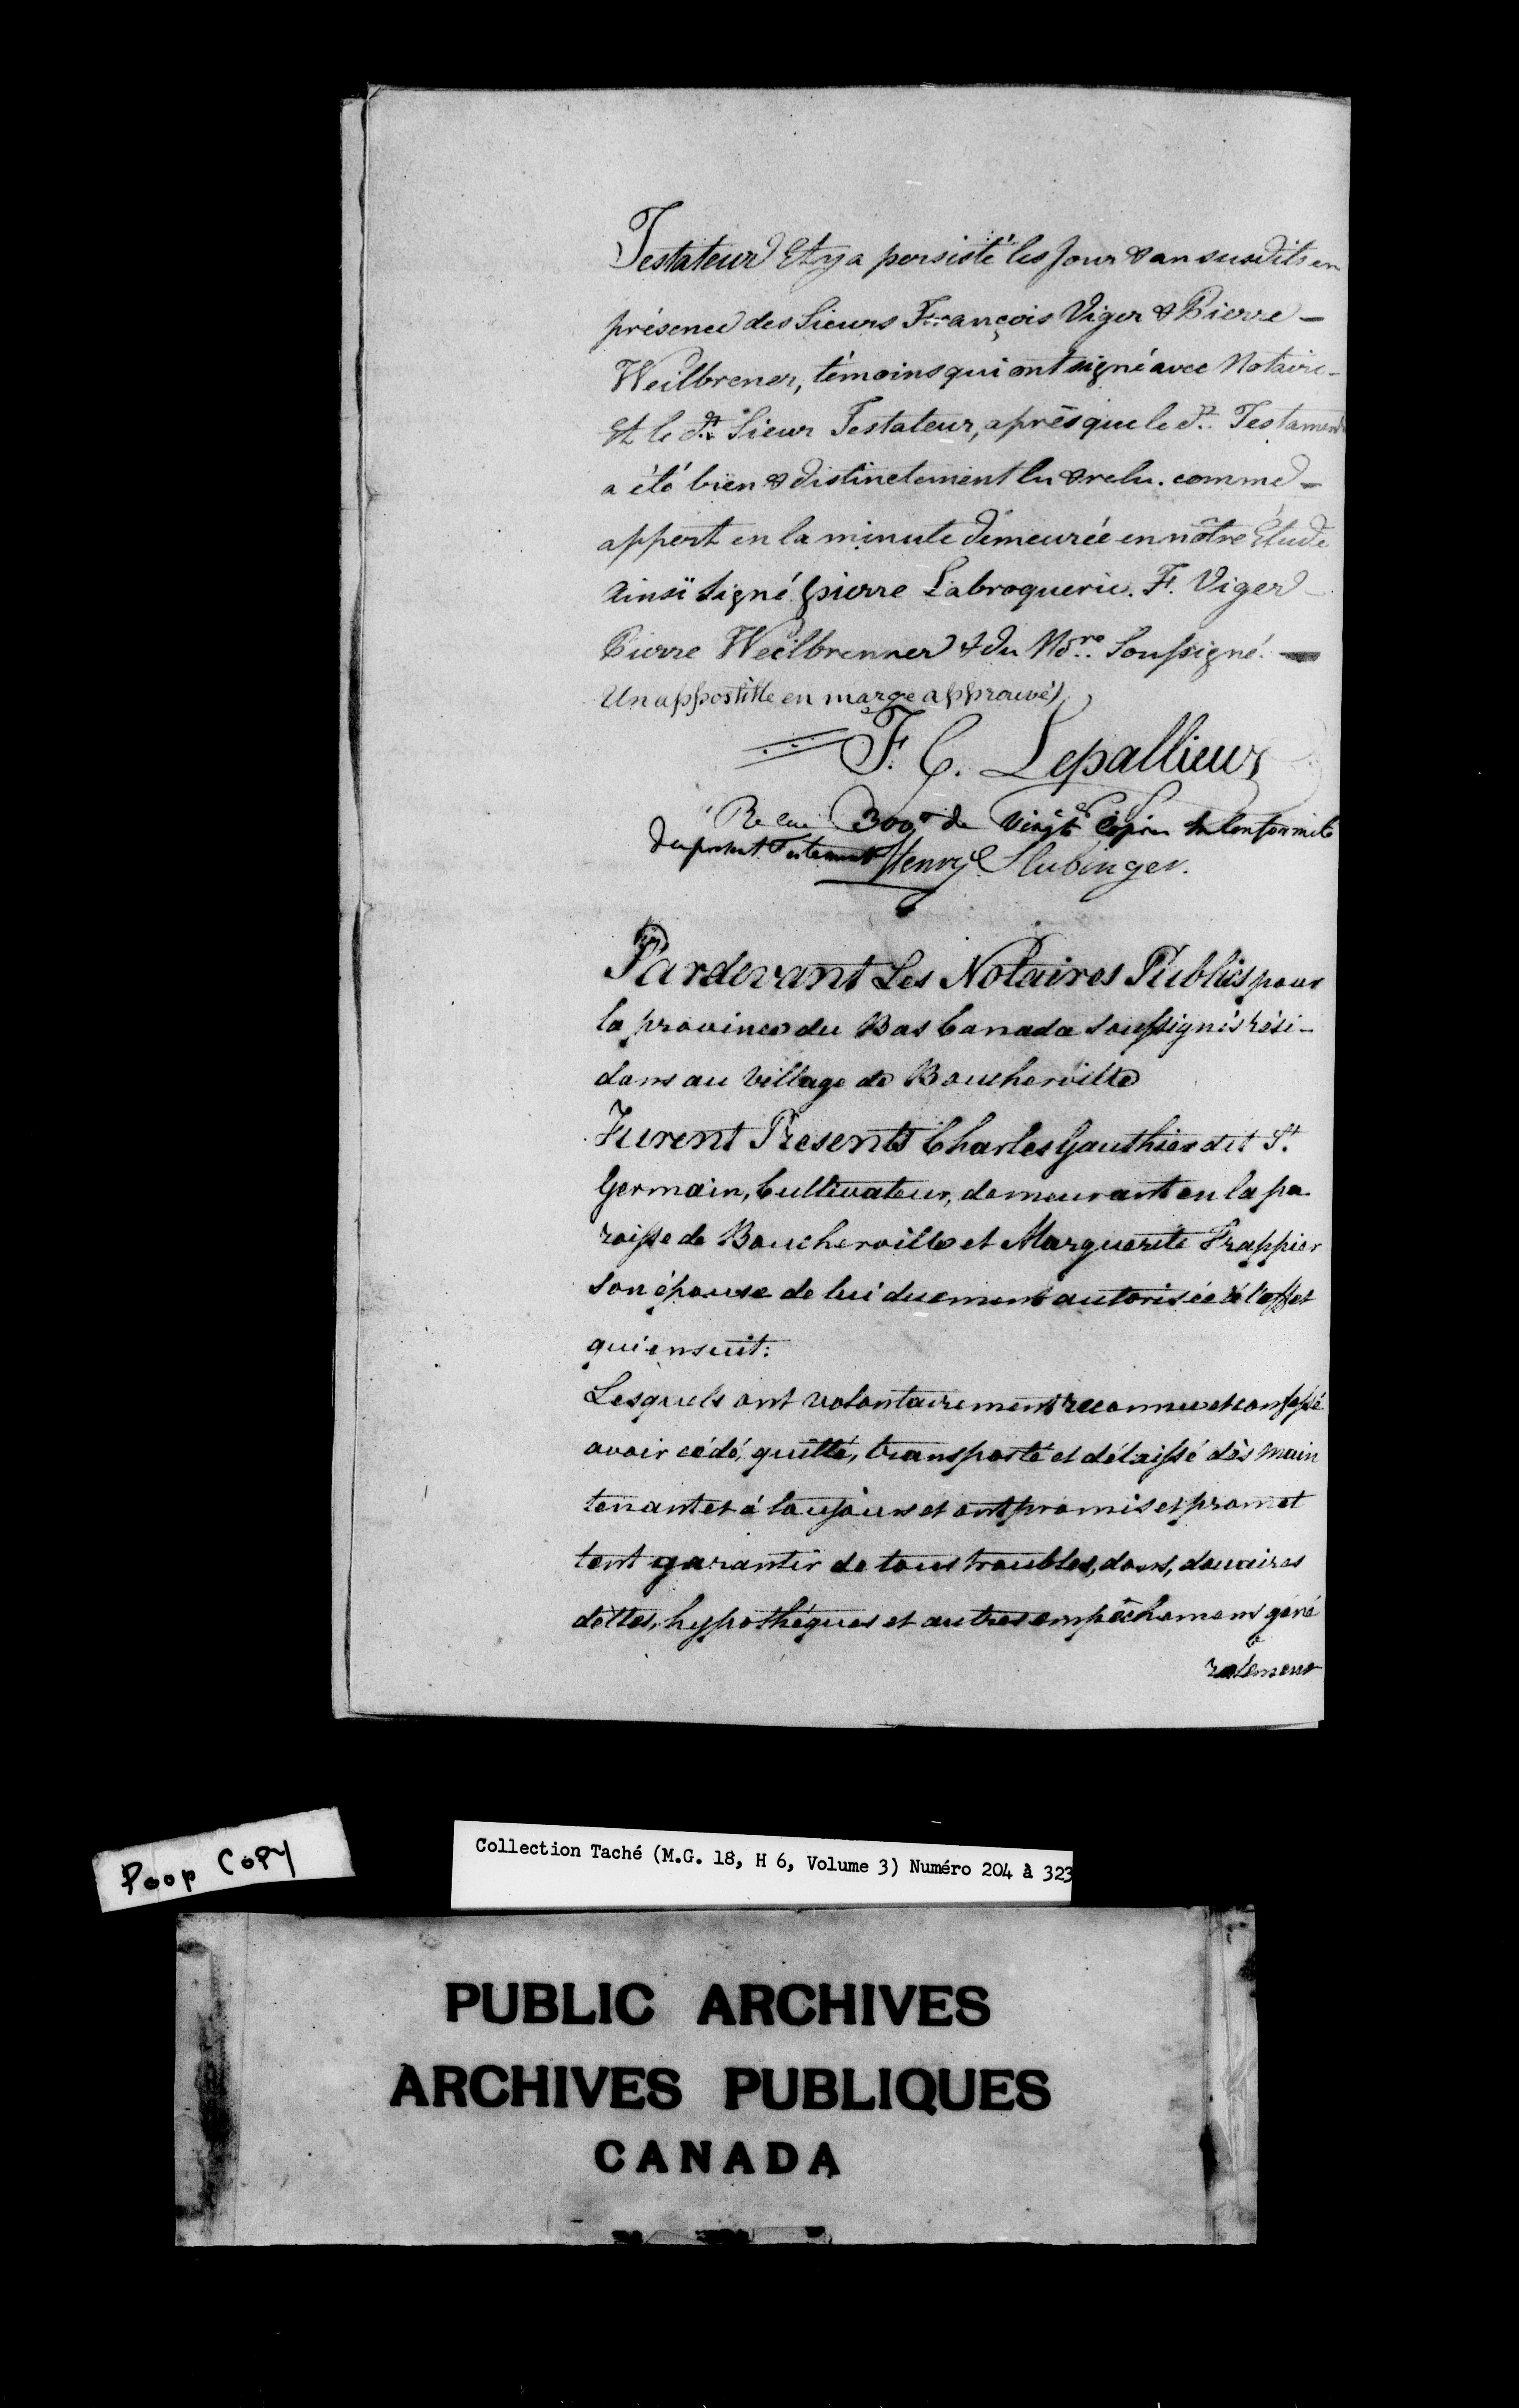 Testateur Et y a persisté les Jour & an susdits en
présence des Sieurs François Viger & Pierre –
Weilbrener, témoins qui ont signé avec Notaire –
Et le dt. Sieur Testateur, après que le dt. Testament
a été bien & distinctement lu & relu. comme –
appert en la minute demeurée en nôtre Étude
Ainsi Signé Pierre Labroquerie. F. Viger –
Pierre Weilbrenner & du Nore. Soussigné. —
Un appostille en marge approuvé
F. C. Lepallieur
Recu 300 de Vingt Copies en Conformité
du présent Testament Henry Slubinger.
Pardevant Les Notaires Publics pour
la province du Bas Canada soussignés rési-
dans au Village de Boucherville
Furent Presents Charles Gauthier dit St.
Germain, Cultivateur, demeurant en la pa
roisse de Boucherville et Marguerite Frappier
son épouse de lui duement autorisée à l'effet
qui ensuit:
Lesquels ont volontairement reconnu et confessé
avoir cédé, quitté, transporté et délaissé dès main
tenant et à toujours et ont promis et promet
tent garantir de tous troubles, dons, douaires
dettes, hypothéques et autres empêchemens géné
ralement
Poop Copy
Collection Taché (M.G. 18, H 6, Volume 3) Numéro 204 à 323
PUBLIC ARCHIVES
ARCHIVES PUBLIQUES
CANADA